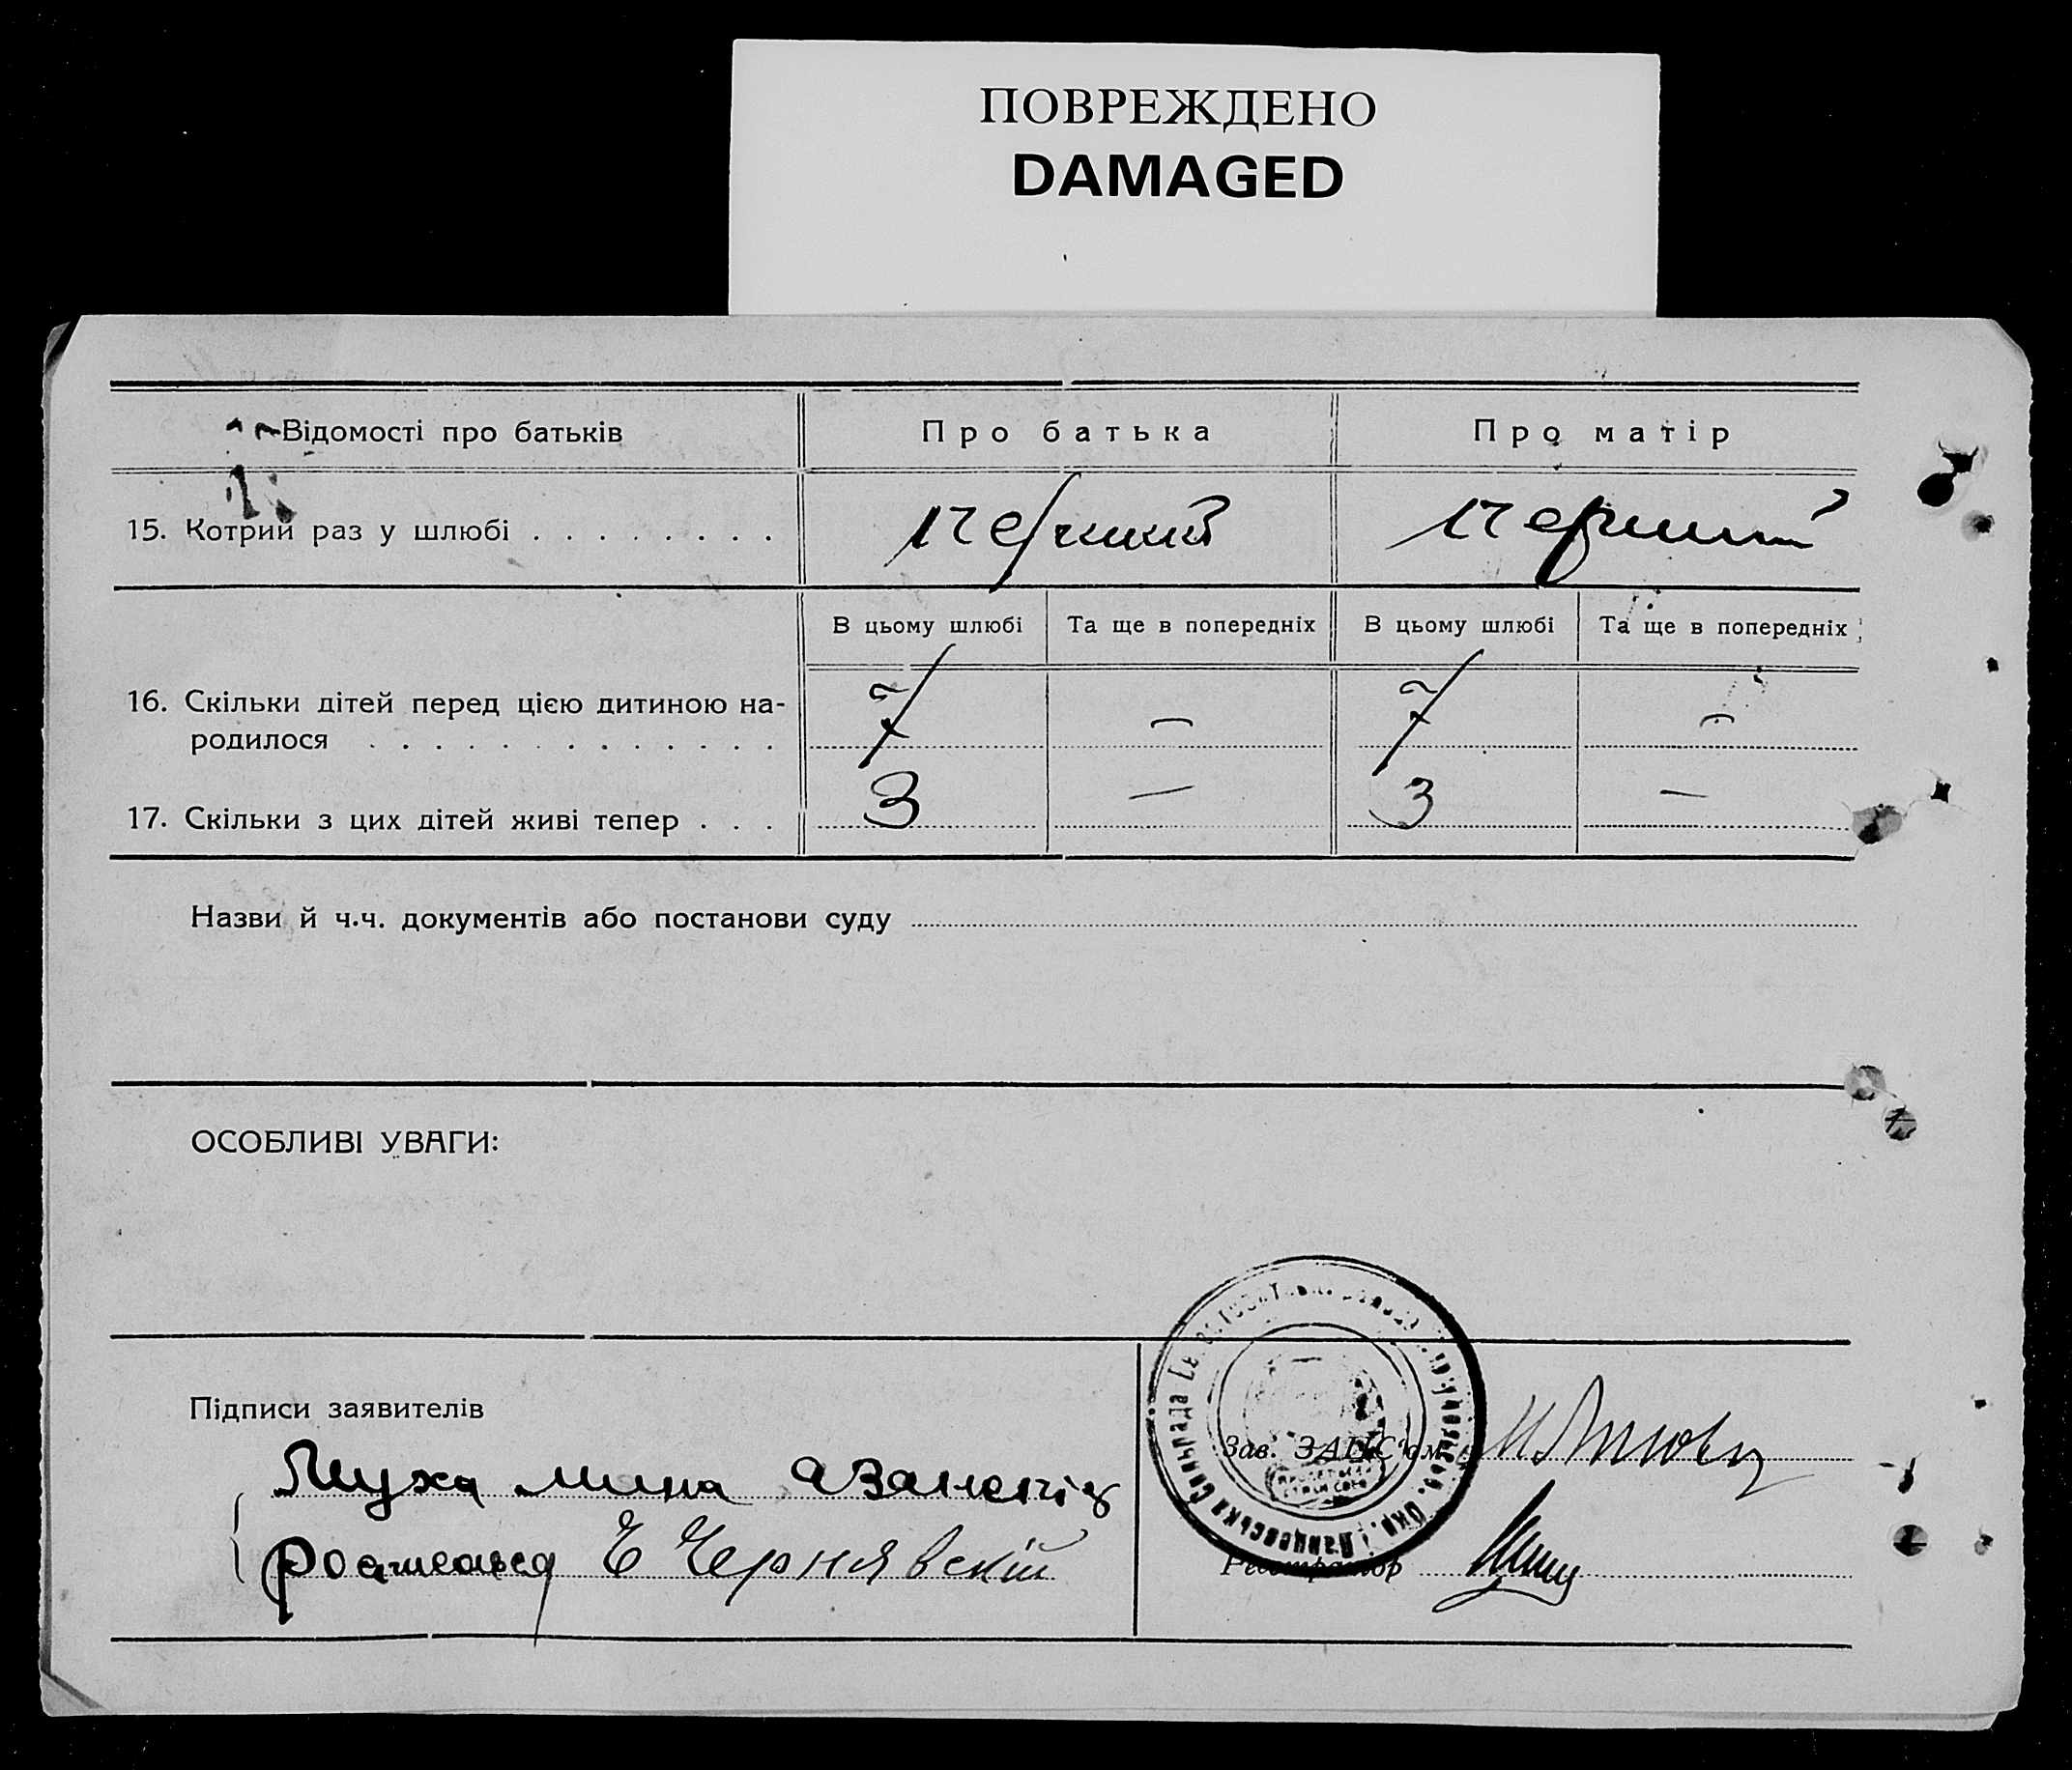 ПОВРЕЖДЕНО
DAMAGED
Відомості про батьків
Про батька
Про матір
15. Котрий раз у шлюбі . . . . . . . .
перший
перший
В цьому шлюбі
Та ще в попередніх
В цьому шлюбі
Та ще в попередніх
16. Скільки дітей перед цією дитиною на-
родилося . . . . . . . . . . . . .
7
—
7
—
17. Скільки з цих дітей живі тепер . . .
3
—
3
—
Назви й ч.ч. документів або постанови суду
ОСОБЛИВІ УВАГИ:
Підписи заявителів
Муха
Чернявскій
Зав. ЗАГС'ом
Реєстратор